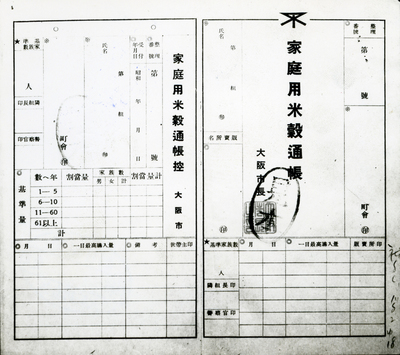 家庭用米穀通帳
大阪市長
整理番號
第 號
氏名
第 組
昭和 年 月 日
販賣所名
町會㊞
★基準家族數
人
隣組長印
警察官印
月 日
一日最高購入量
販賣所印
家庭用米穀通帳控
大阪市
整理番號
第 號
受付年月日
昭和 年 月 日
氏名
第 組
町會㊞
基準家族數
人
隣組長印
警察官印
基準量
年〜數
割當量
家族數
男 女 計
割當量計
1—5
6—10
11—60
61以上
計
月 日
一日最高購入量
備考
世帶主印